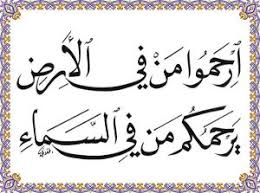 اِرْحَمُوا مَنْ فِي الْأَرْضِ
يَرْحَمْكُمْ مَنْ فِي السَّمَاءِ